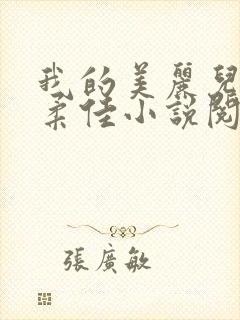 我的美麗兒
柔佳小說閱
張廣敏